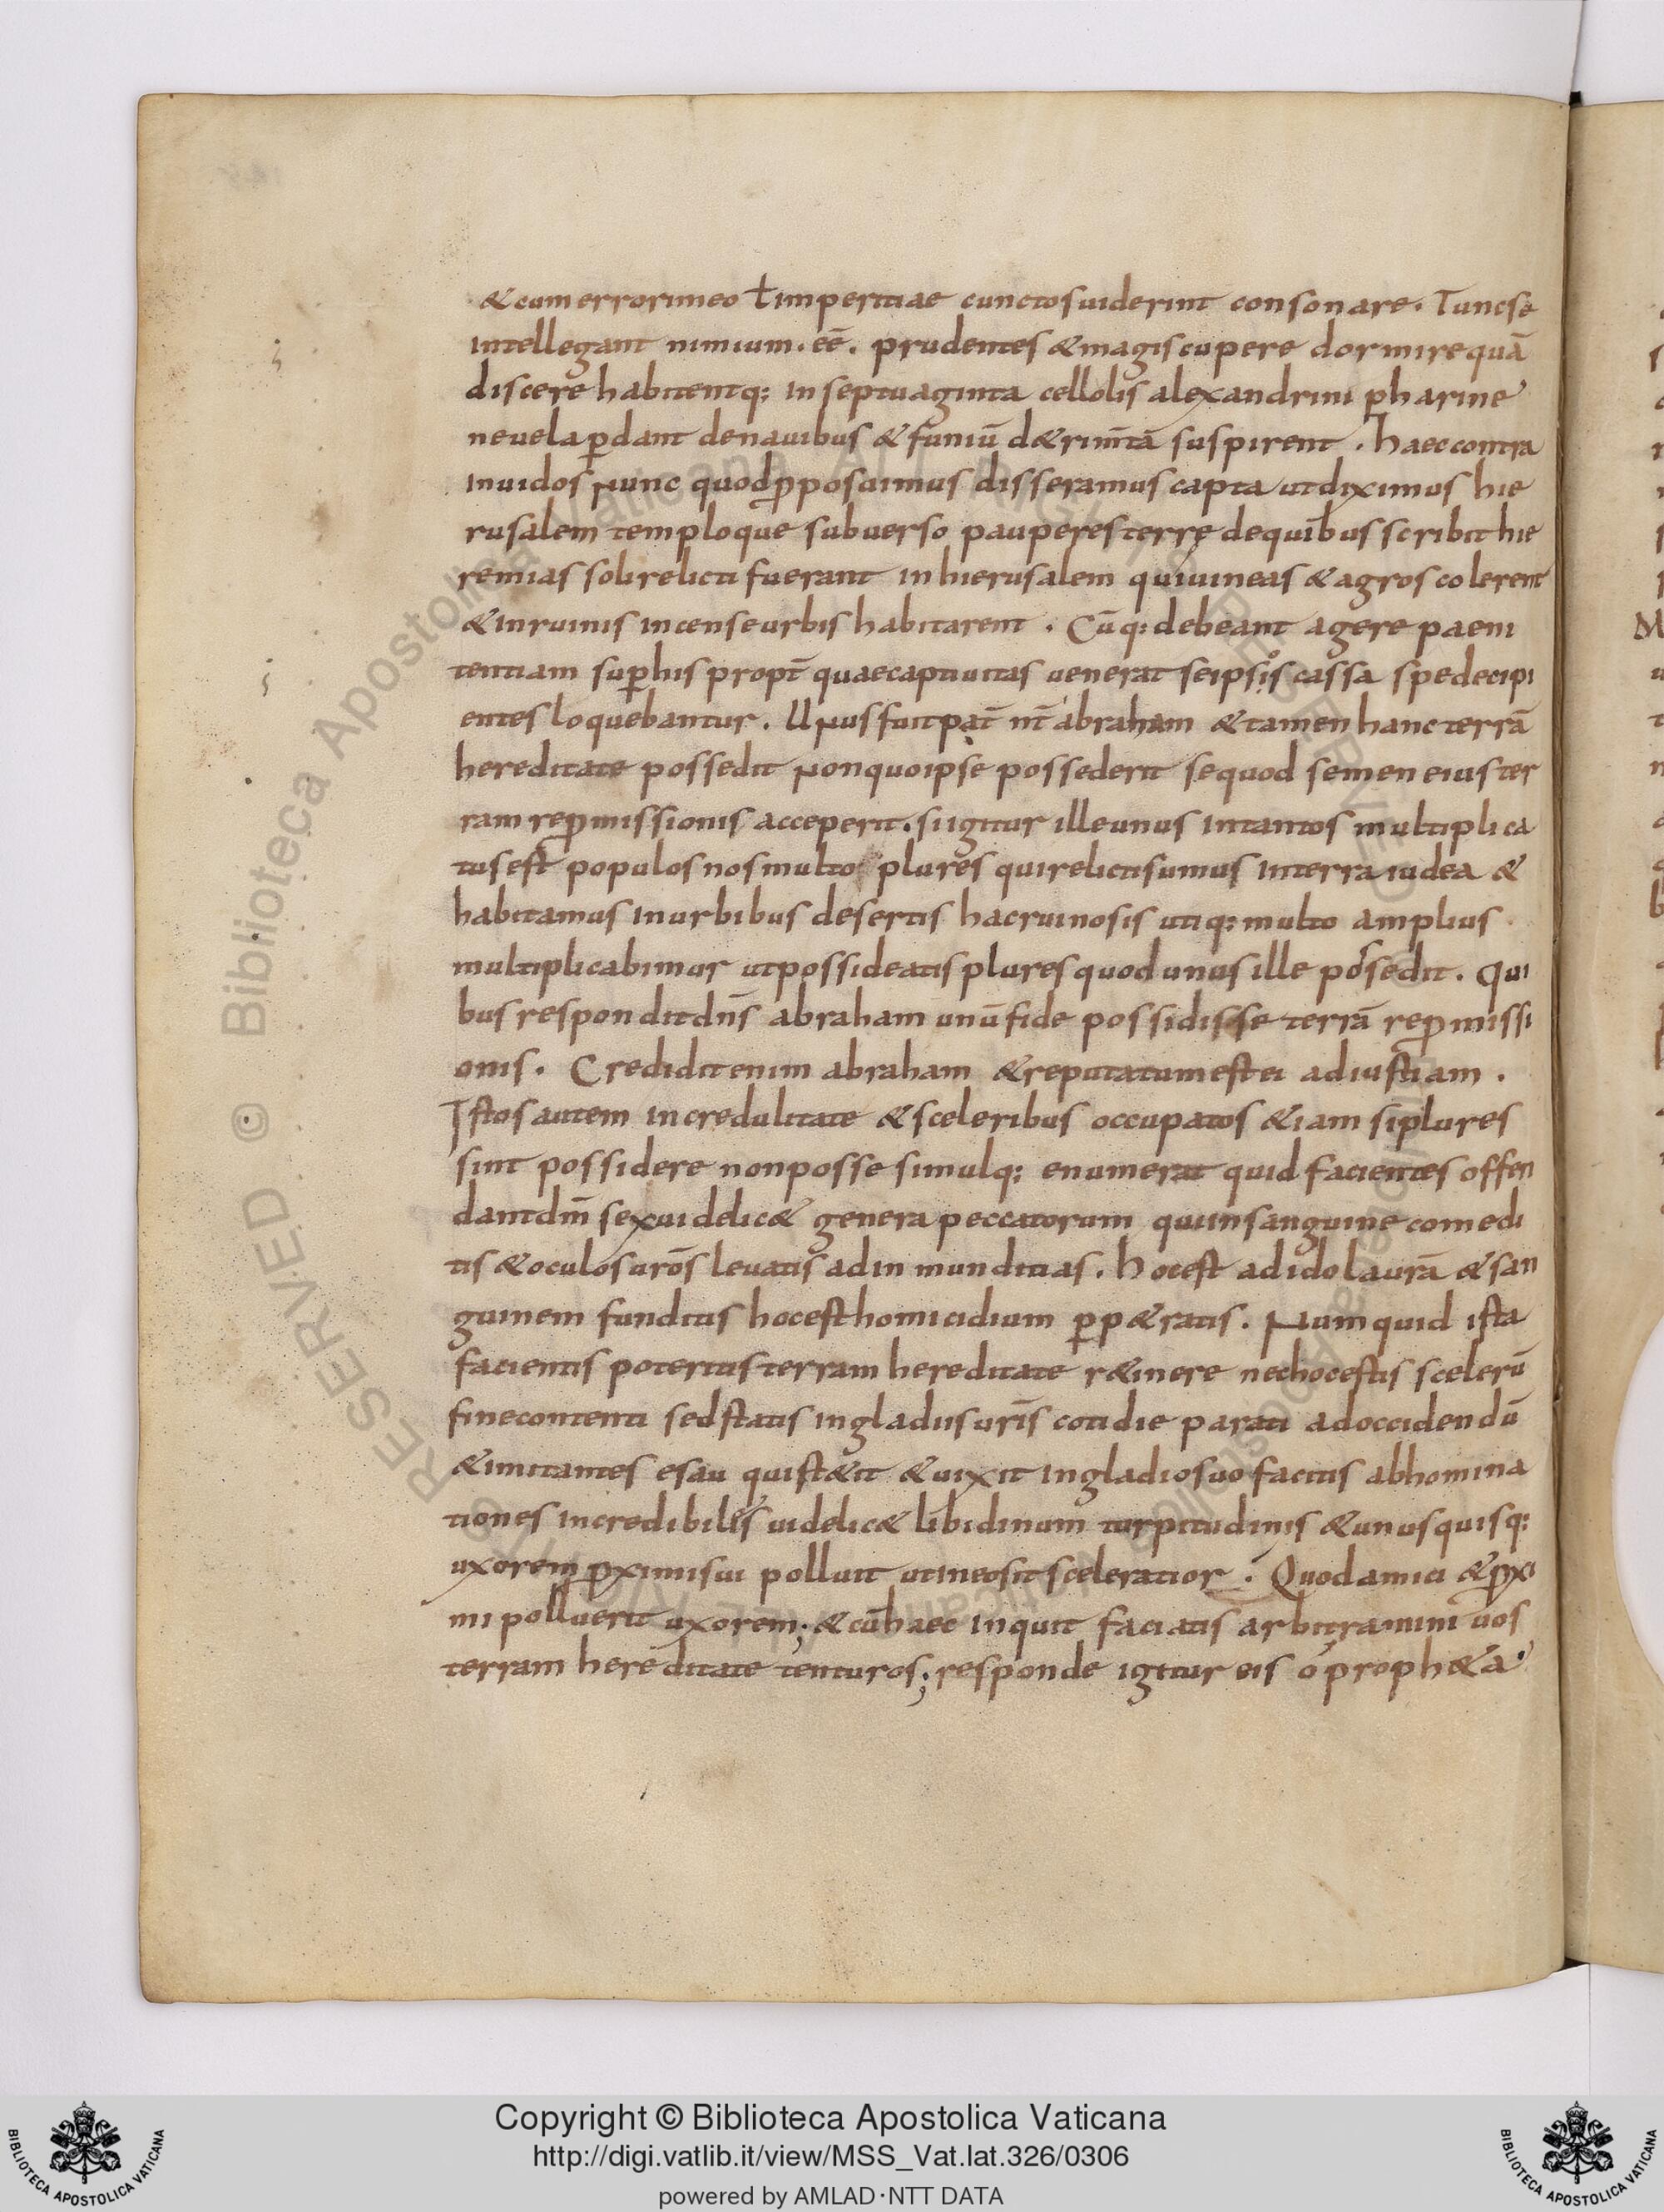 & cum errori meo ł imperitiae cunctos uiderint consonare. Tunc se
intellegant nimium. eē. prudentes & magis cupere dormire quā
discere habitentq; in septuaginta cellolis alexandrini phari ne
ne uela ꝑdant de nauibus & funiū d&rim̄tā suspirent. haec contra
inuidos Nunc quod ꝓposuimus disseramus capta ut diximus hie
rusalem temploque subuerso pauperes terre de quibus scribit hie
remias soli relicti fuerant in hierusalem qui uineas & agros colerent
& in ruinis incense urbis habitarent. Cūq; debeant agere paeni
tentiam suꝑ his propt̄ quae captiuitas uenerat se ipsis cassa spe decipi
entes loquebantur. UNus fuit pat̄ nr̄ abraham & tamen hanc terrā
hereditate possedit Non quo ipse possederit se quod semen eius ter
ram reꝓmissionis acceperit. si igitur ille unus in tantos multiplica
tus est populos nos multo plures qui relicti sumus in terra iudea &
habitamus in urbibus desertis hac ruinosis utiq; multo amplius
multiplicabimur ut possideatis plures quod unus ille possedit. Qui
bus respondit dn̄s abraham unū fide possidisse terrā reꝓmissi
onis. Credidit enim abraham & reputatum est ei ad iustiam.
Istos autem incredulitate & sceleribus occupatos &iam si plures
sint possidere non posse simulq; enumerat quid facientes offen
dant dm̄ sex uidelic& genera peccatorum qui in sanguine comedi
tis & oculos ur̄os leuatis ad inmunditias. Hoc est ad idolatrā & san
guinem funditis hoc est homicidium ꝑp&ratis. Numquid ista
facientis poteritis terram hereditate r&inere nec hoc estis scelerū
fine contenti sed statis in gladiis ur̄is cotidie parati ad occidendū
& imitantes esau qui st&it & uixit in gladio suo facitis abhomina
tiones incredibiles uidelic& libidinum turpitudinis & unusquisq;
uxorem ꝓximi sui polluit ut in eo sit sceleratior. Quod amici & ꝓxi
mi polluerit uxorem; & cū haec inquit faciatis arbitramini uos
terram hereditate tenturos; responde igitur eis o proph&a.
Copyright © Biblioteca Apostolica Vaticana
http://digi.vatlib.it/view/MSS_Vat.lat.326/0306
powered by AMLAD·NTT DATA
BIBLIOTECA APOSTOLICA VATICANA
BIBLIOTECA APOSTOLICA VATICANA